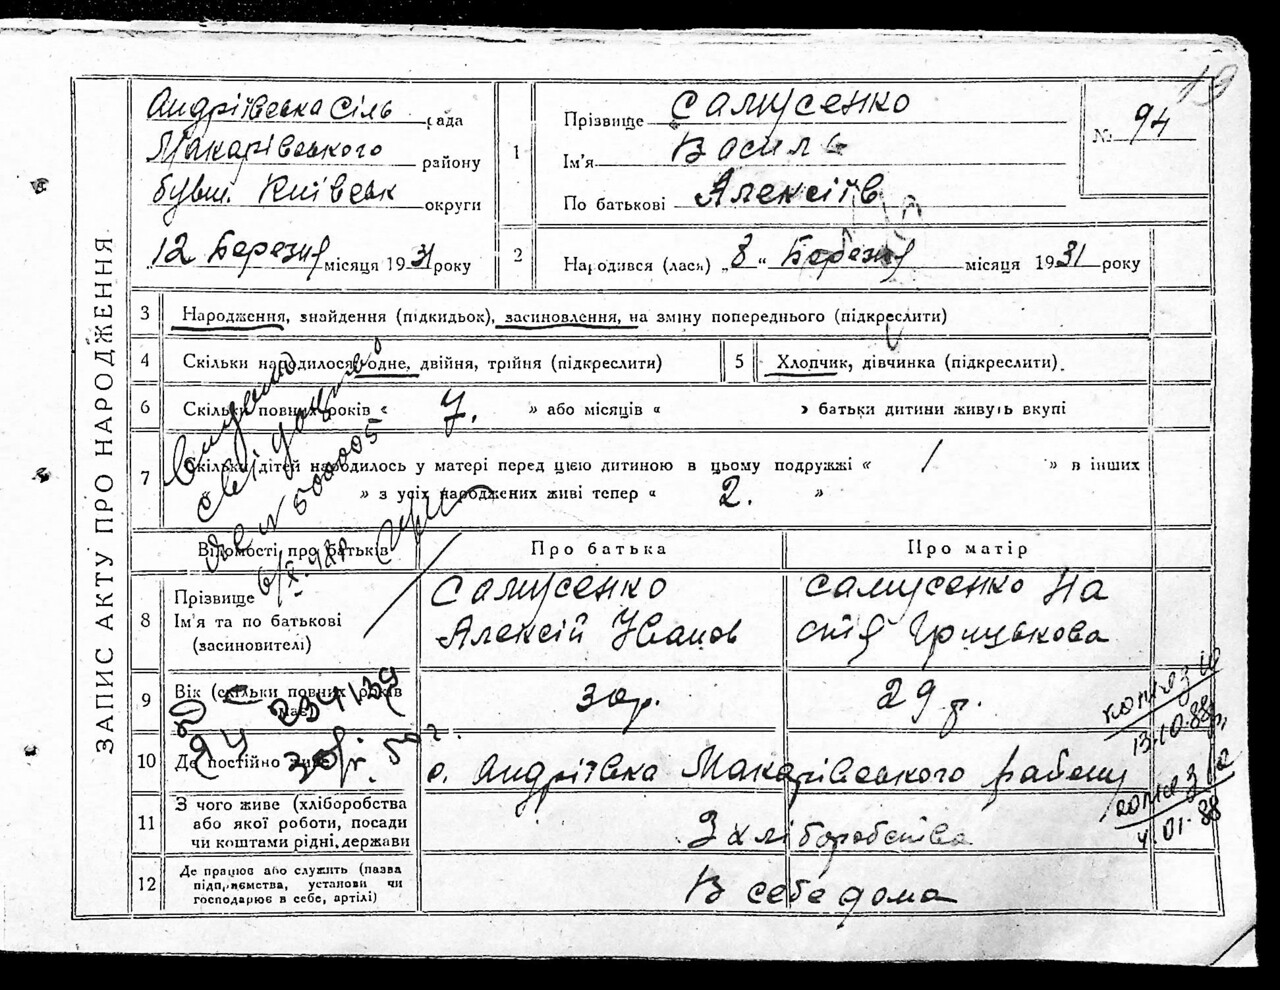 19
ЗАПИС АКТУ ПРО НАРОДЖЕННЯ
Андріївська Сіль рада
Макарівського району
бувш. Київськ округи
"12 Березня місяця 1931 року
1 Прізвище Самусенко
Ім'я Василь
По батькові Алексіїв
№ 94
2 Народився (лася) „8" Березня місяця 1931 року
3 Народження, знайдення (підкидьок), засиновлення, на зміну попереднього (підкреслити)
4 Скільки народилося: одне, двійня, трійня (підкреслити)
5 Хлопчик, дівчинка (підкреслити).
6 Скільки повних років « 7. » або місяців « » батьки дитини живуть вкупі
7 Скільки дітей народилось у матері перед цією дитиною в цьому подружжі « 1 » в інших
« » з усіх народжених живі тепер « 2. »
Відомості про батьків
Про батька
Про матір
8 Прізвище
Ім'я та по батькові
(засиновителі)
Самусенко
Алексій Іванов
Самусенко На
стя Грицькова
9 Вік (скільки повних років
має)
30р.
29 р.
10 Де постійно живе
с. Андріївка Макарівського району
11 З чого живе (хліборобства
або якої роботи, посади
чи коштами рідні, держави
З хліборобства
12 Де працює або служить (назва
підприємства, установи чи
господарює в себе, артілі)
В себе дома
234139
500005
копія
13.10.88р.
копія
4.01.88